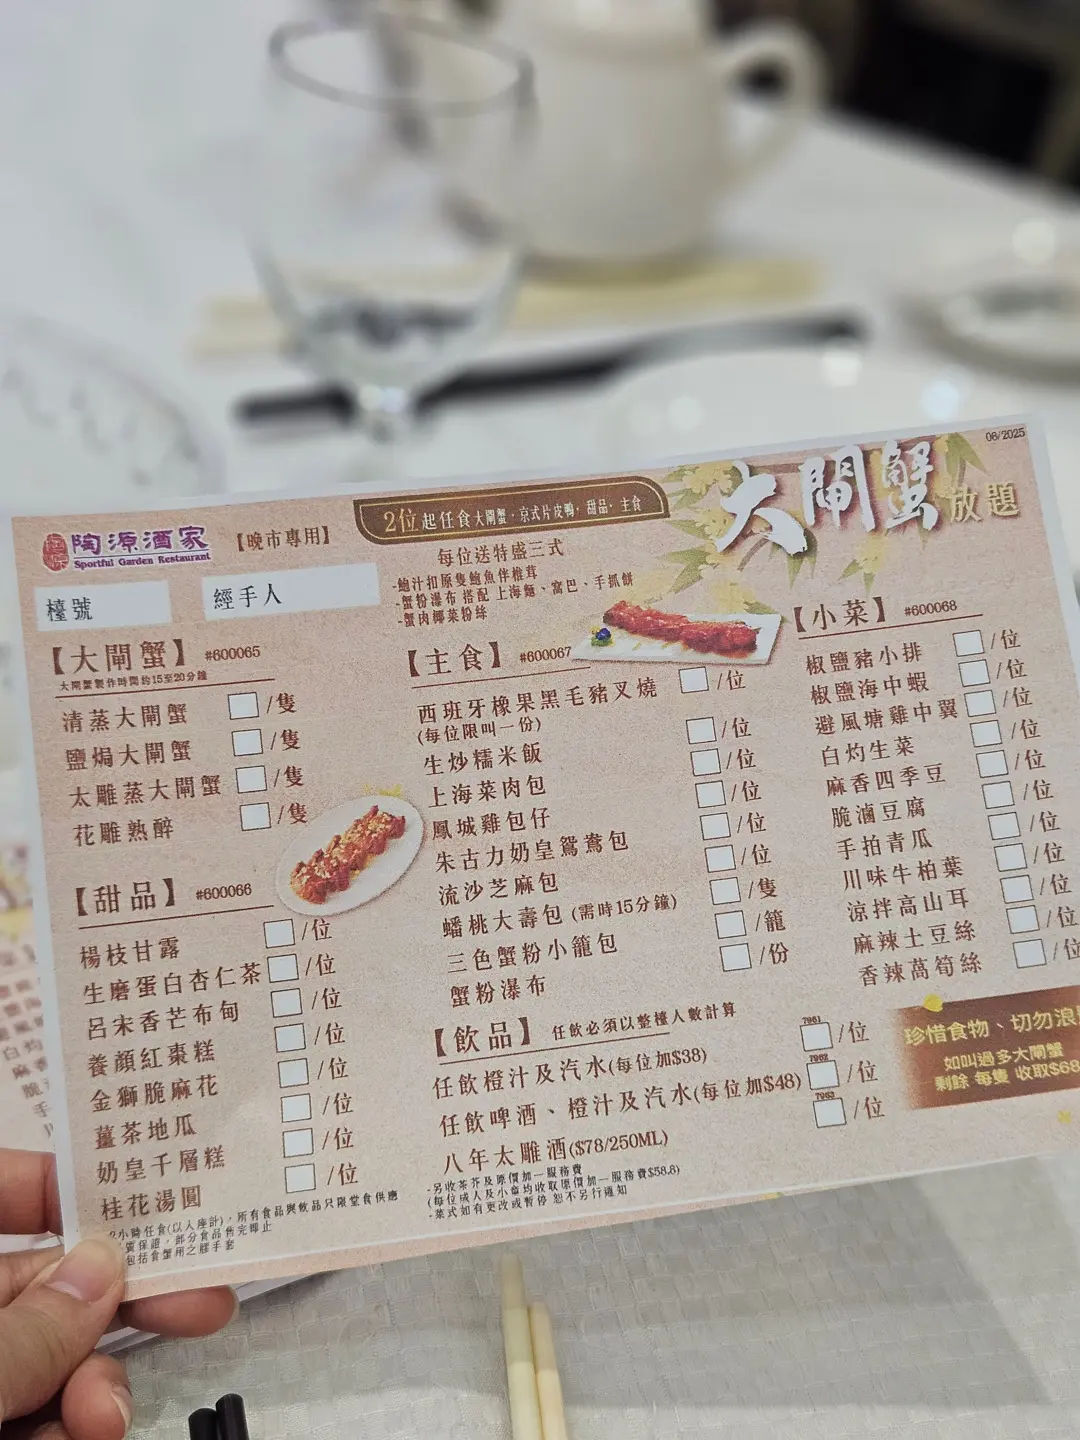 08/2025
大閘蟹放題
陶源酒家
Sportful Garden Restaurant
【晚市專用】
2位起任食大閘蟹·京式片皮鴨·甜品·主食
每位送特盛三式
-鮑汁扣原隻鮑魚伴椎茸
-蟹粉瀑布 搭配 上海麵、窩巴、手抓餅
-蟹肉椰菜粉絲
檯號
經手人
【大閘蟹】 #600065
大閘蟹製作時間約15至20分鐘
清蒸大閘蟹 /隻
鹽焗大閘蟹 /隻
太雕蒸大閘蟹 /隻
花雕熟醉 /隻
【甜品】 #600066
楊枝甘露 /位
生磨蛋白杏仁茶 /位
呂宋香芒布甸 /位
養顏紅棗糕 /位
金獅脆麻花 /位
薑茶地瓜 /位
奶皇千層糕 /位
桂花湯圓 /位
2小時任食(以入座計)，所有食品與飲品只限堂食供應
質保證，部分食品售完即止
包括食蟹用之膠手套
【主食】 #600067
西班牙橡果黑毛豬叉燒 /位
(每位限叫一份)
生炒糯米飯 /位
上海菜肉包 /位
鳳城雞包仔 /位
朱古力奶皇鴛鴦包 /位
流沙芝麻包 /位
蟠桃大壽包 (需時15分鐘) /隻
三色蟹粉小籠包 /籠
蟹粉瀑布 /份
【飲品】 任飲必須以整檯人數計算
任飲橙汁及汽水(每位加$38) 7961 /位
任飲啤酒、橙汁及汽水(每位加$48) 7962 /位
八年太雕酒($78/250ML) 7963 /位
-另收茶芥及原價加一服務費
(每位成人及小童均收取原價加一服務費$58.8)
-菜式如有更改或暫停 恕不另行通知
【小菜】 #600068
椒鹽豬小排 /位
椒鹽海中蝦 /位
避風塘雞中翼 /位
白灼生菜 /位
麻香四季豆 /位
脆滷豆腐 /位
手拍青瓜 /位
川味牛柏葉 /位
涼拌高山耳 /位
麻辣土豆絲 /位
香辣萵筍絲 /位
珍惜食物、切勿浪
如叫過多大閘蟹
剩餘 每隻 收取$68